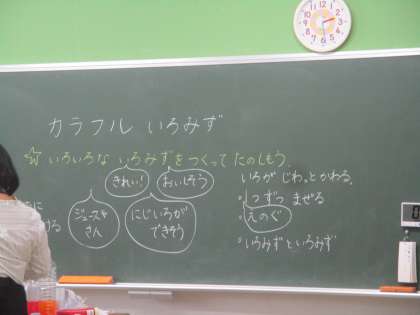 カラフル いろみず
☆ いろいろな いろみずをつくって たのしもう。
きれい！
おいしそう
ジュースや
さん
にじいろが
できそう
いろが じわっとかわる。
・1つずつ まぜる
・えのぐ
・いろみずといろみず